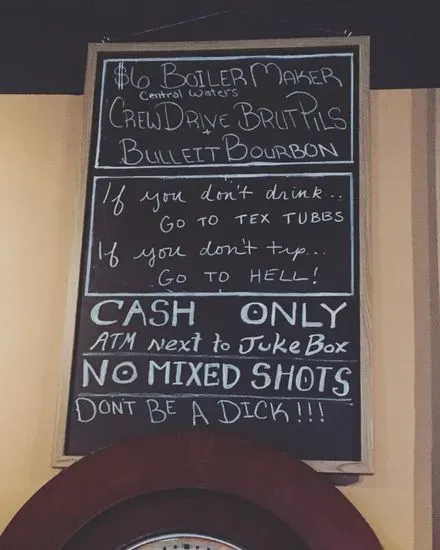 $6 BOILER MAKER
Central Waters
CREW DRIVE BRUT PILS
+
BULLEIT BOURBON
If you don't drink..
GO TO TEX TUBBS
If you don't tip...
GO TO HELL!
CASH ONLY
ATM next to JukeBox
NO MIXED SHOTS
DONT BE A DICK!!!